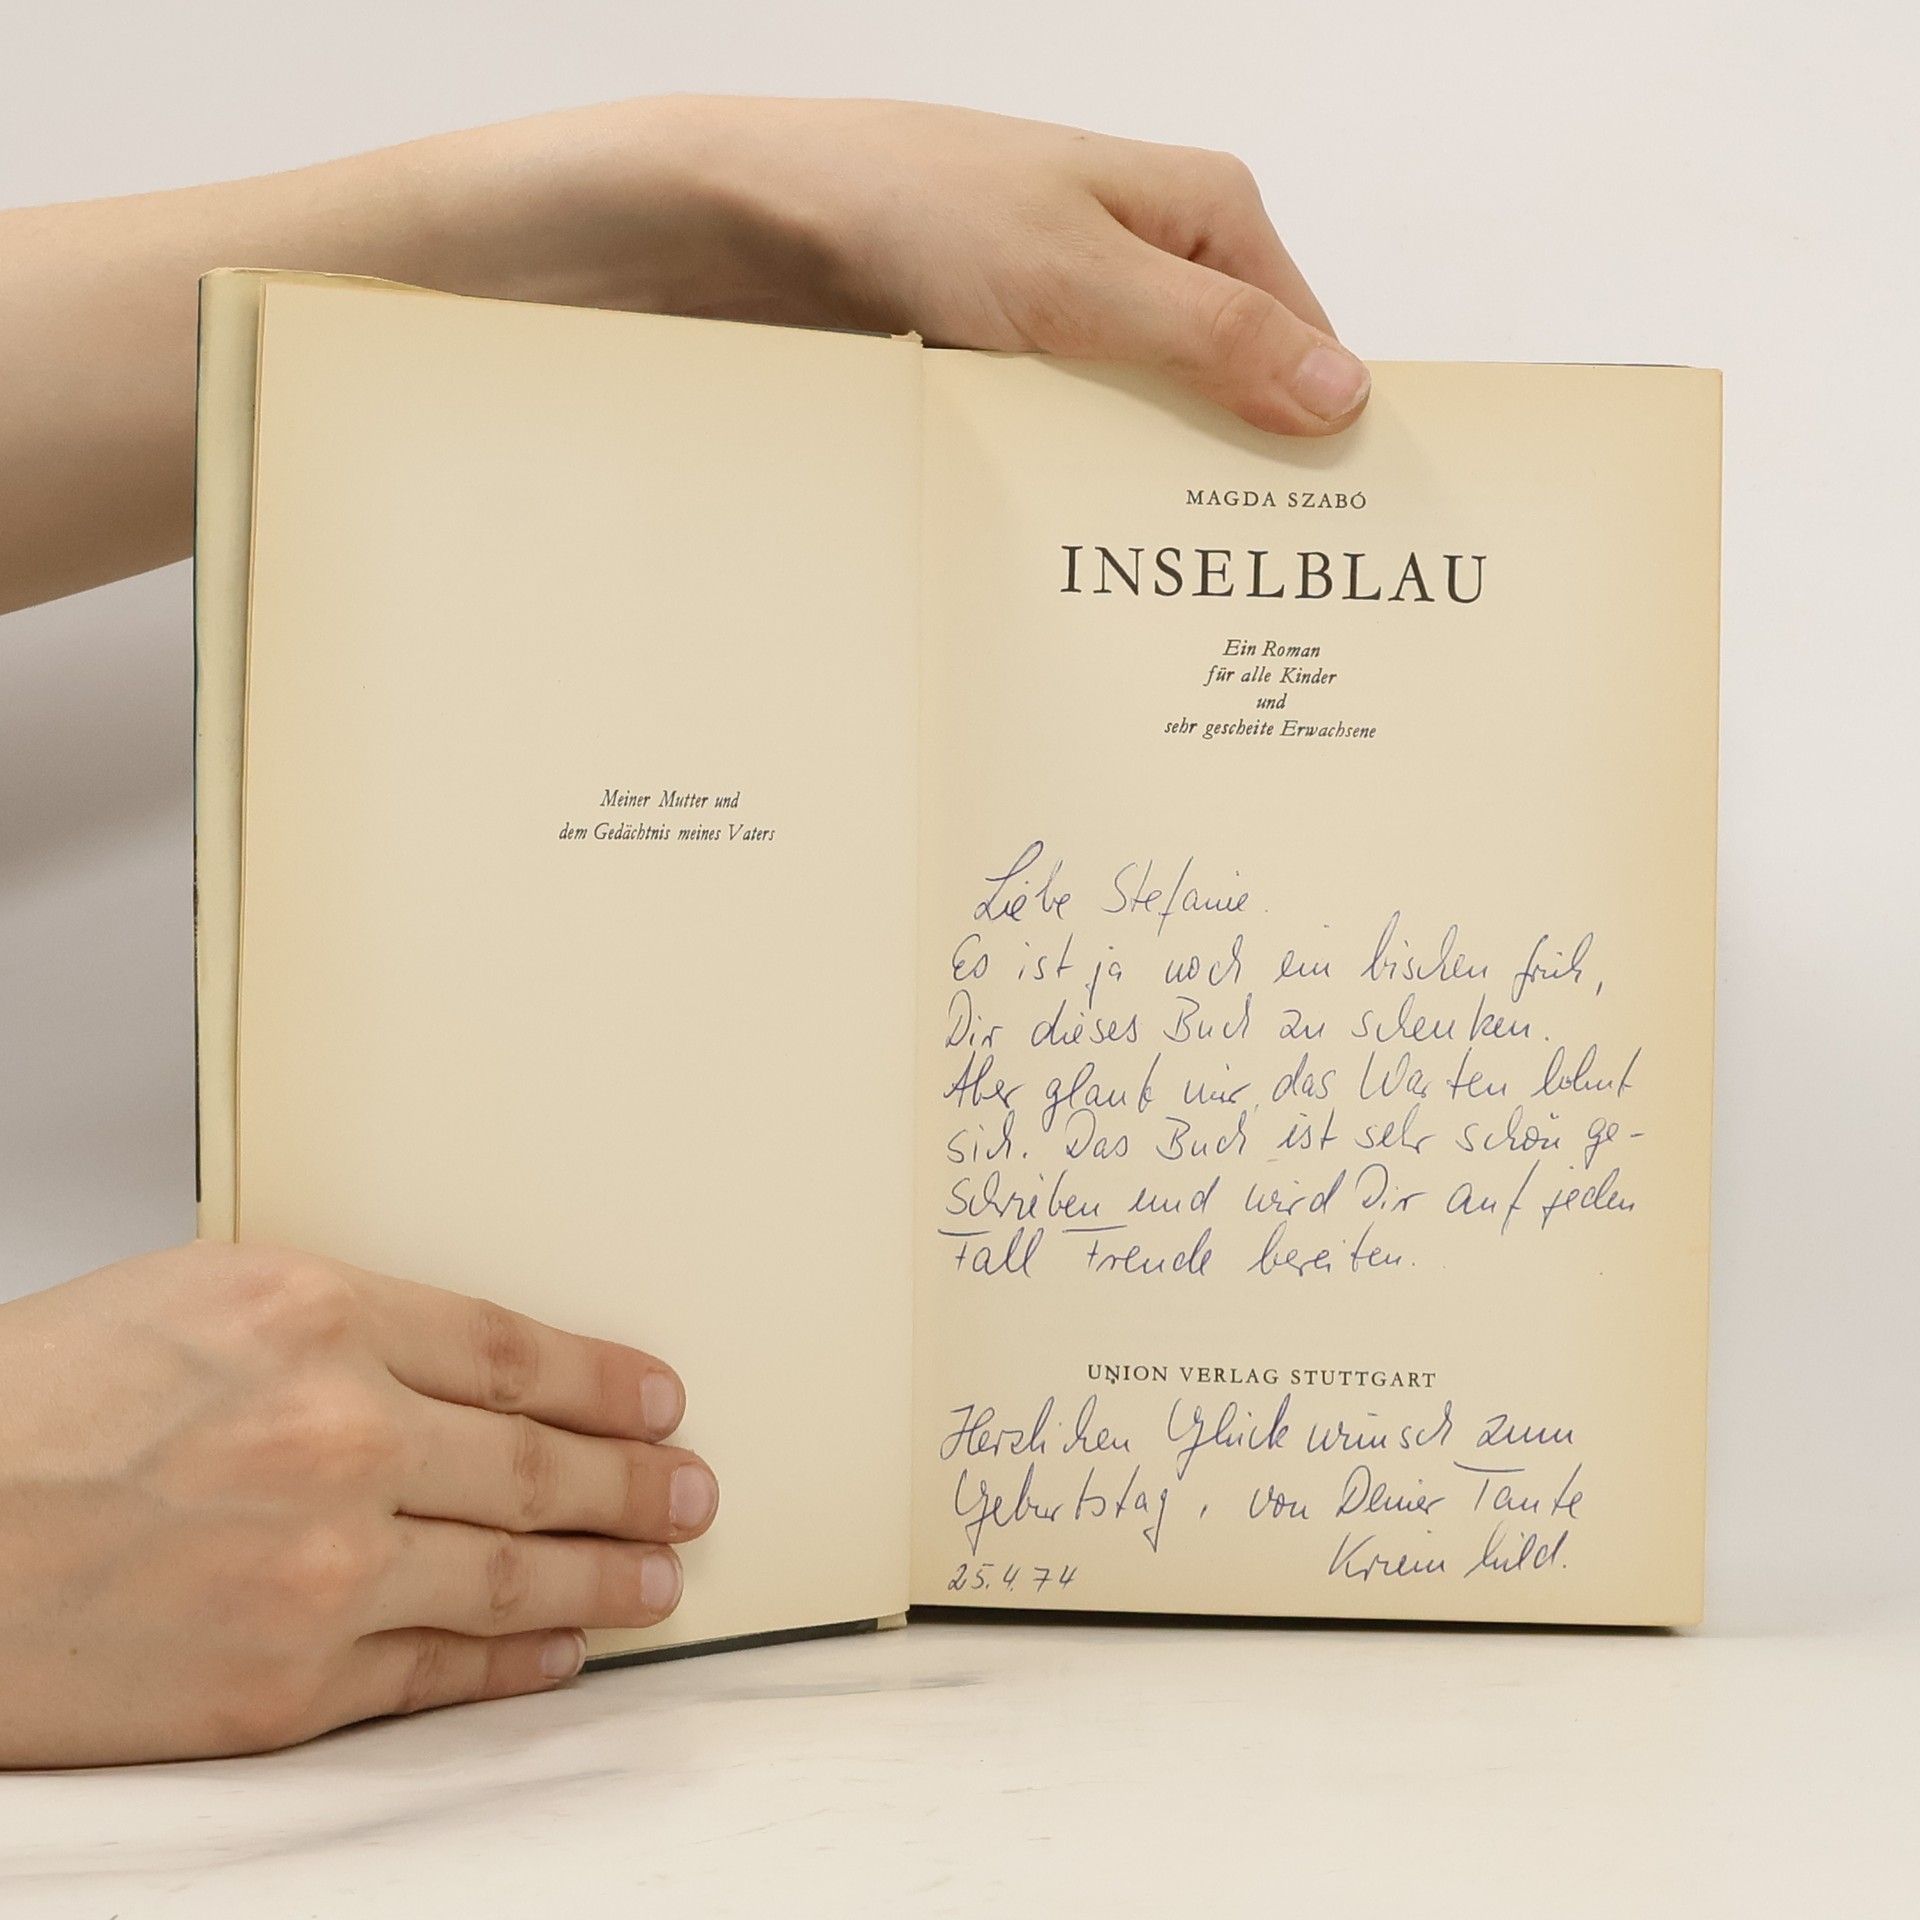 Meiner Mutter und
dem Gedächtnis meines Vaters
MAGDA SZABÓ
INSELBLAU
Ein Roman
für alle Kinder
und
sehr gescheite Erwachsene
Liebe Stefanie.
Es ist ja noch ein bischen früh,
Dir dieses Buch zu schenken.
Aber glaub mir, das Warten lohnt
sich. Das Buch ist sehr schön ge-
schrieben und wird Dir auf jeden
Fall Freude bereiten.
UNION VERLAG STUTTGART
Herzlichen Glückwunsch zum
Geburtstag, von Deiner Tante
Kriemhild.
25.4.74